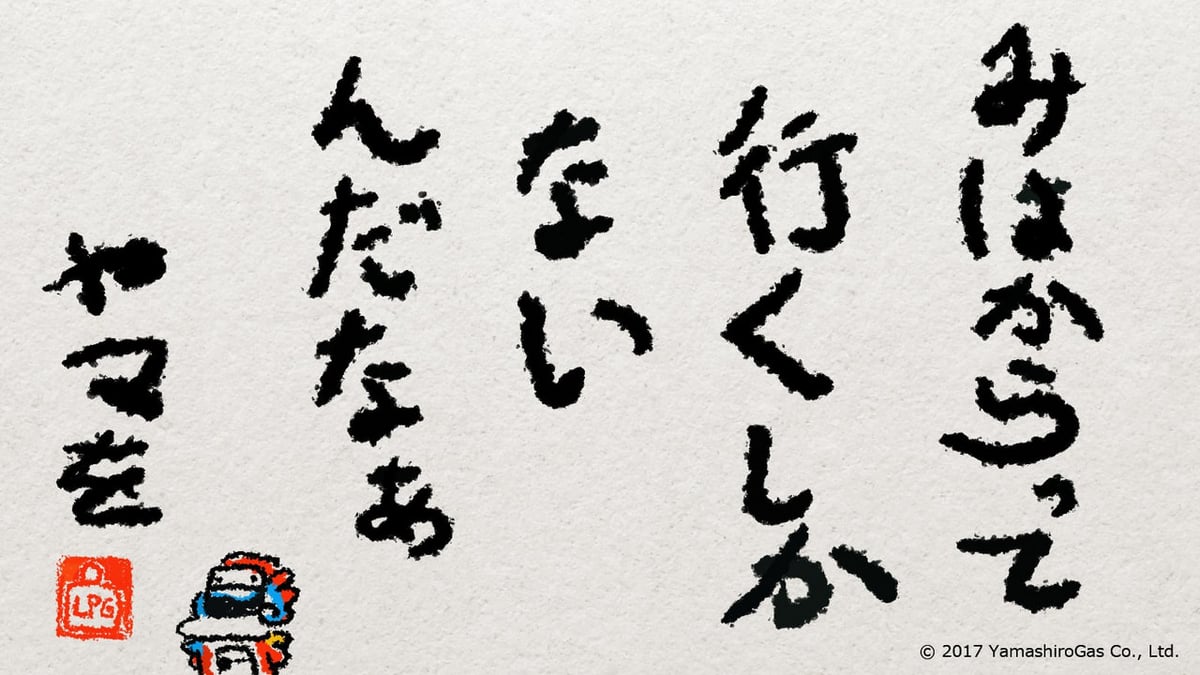 みはからって
行くしか
ない
んだなぁ
LPG
© 2017 YamashiroGas Co., Ltd.